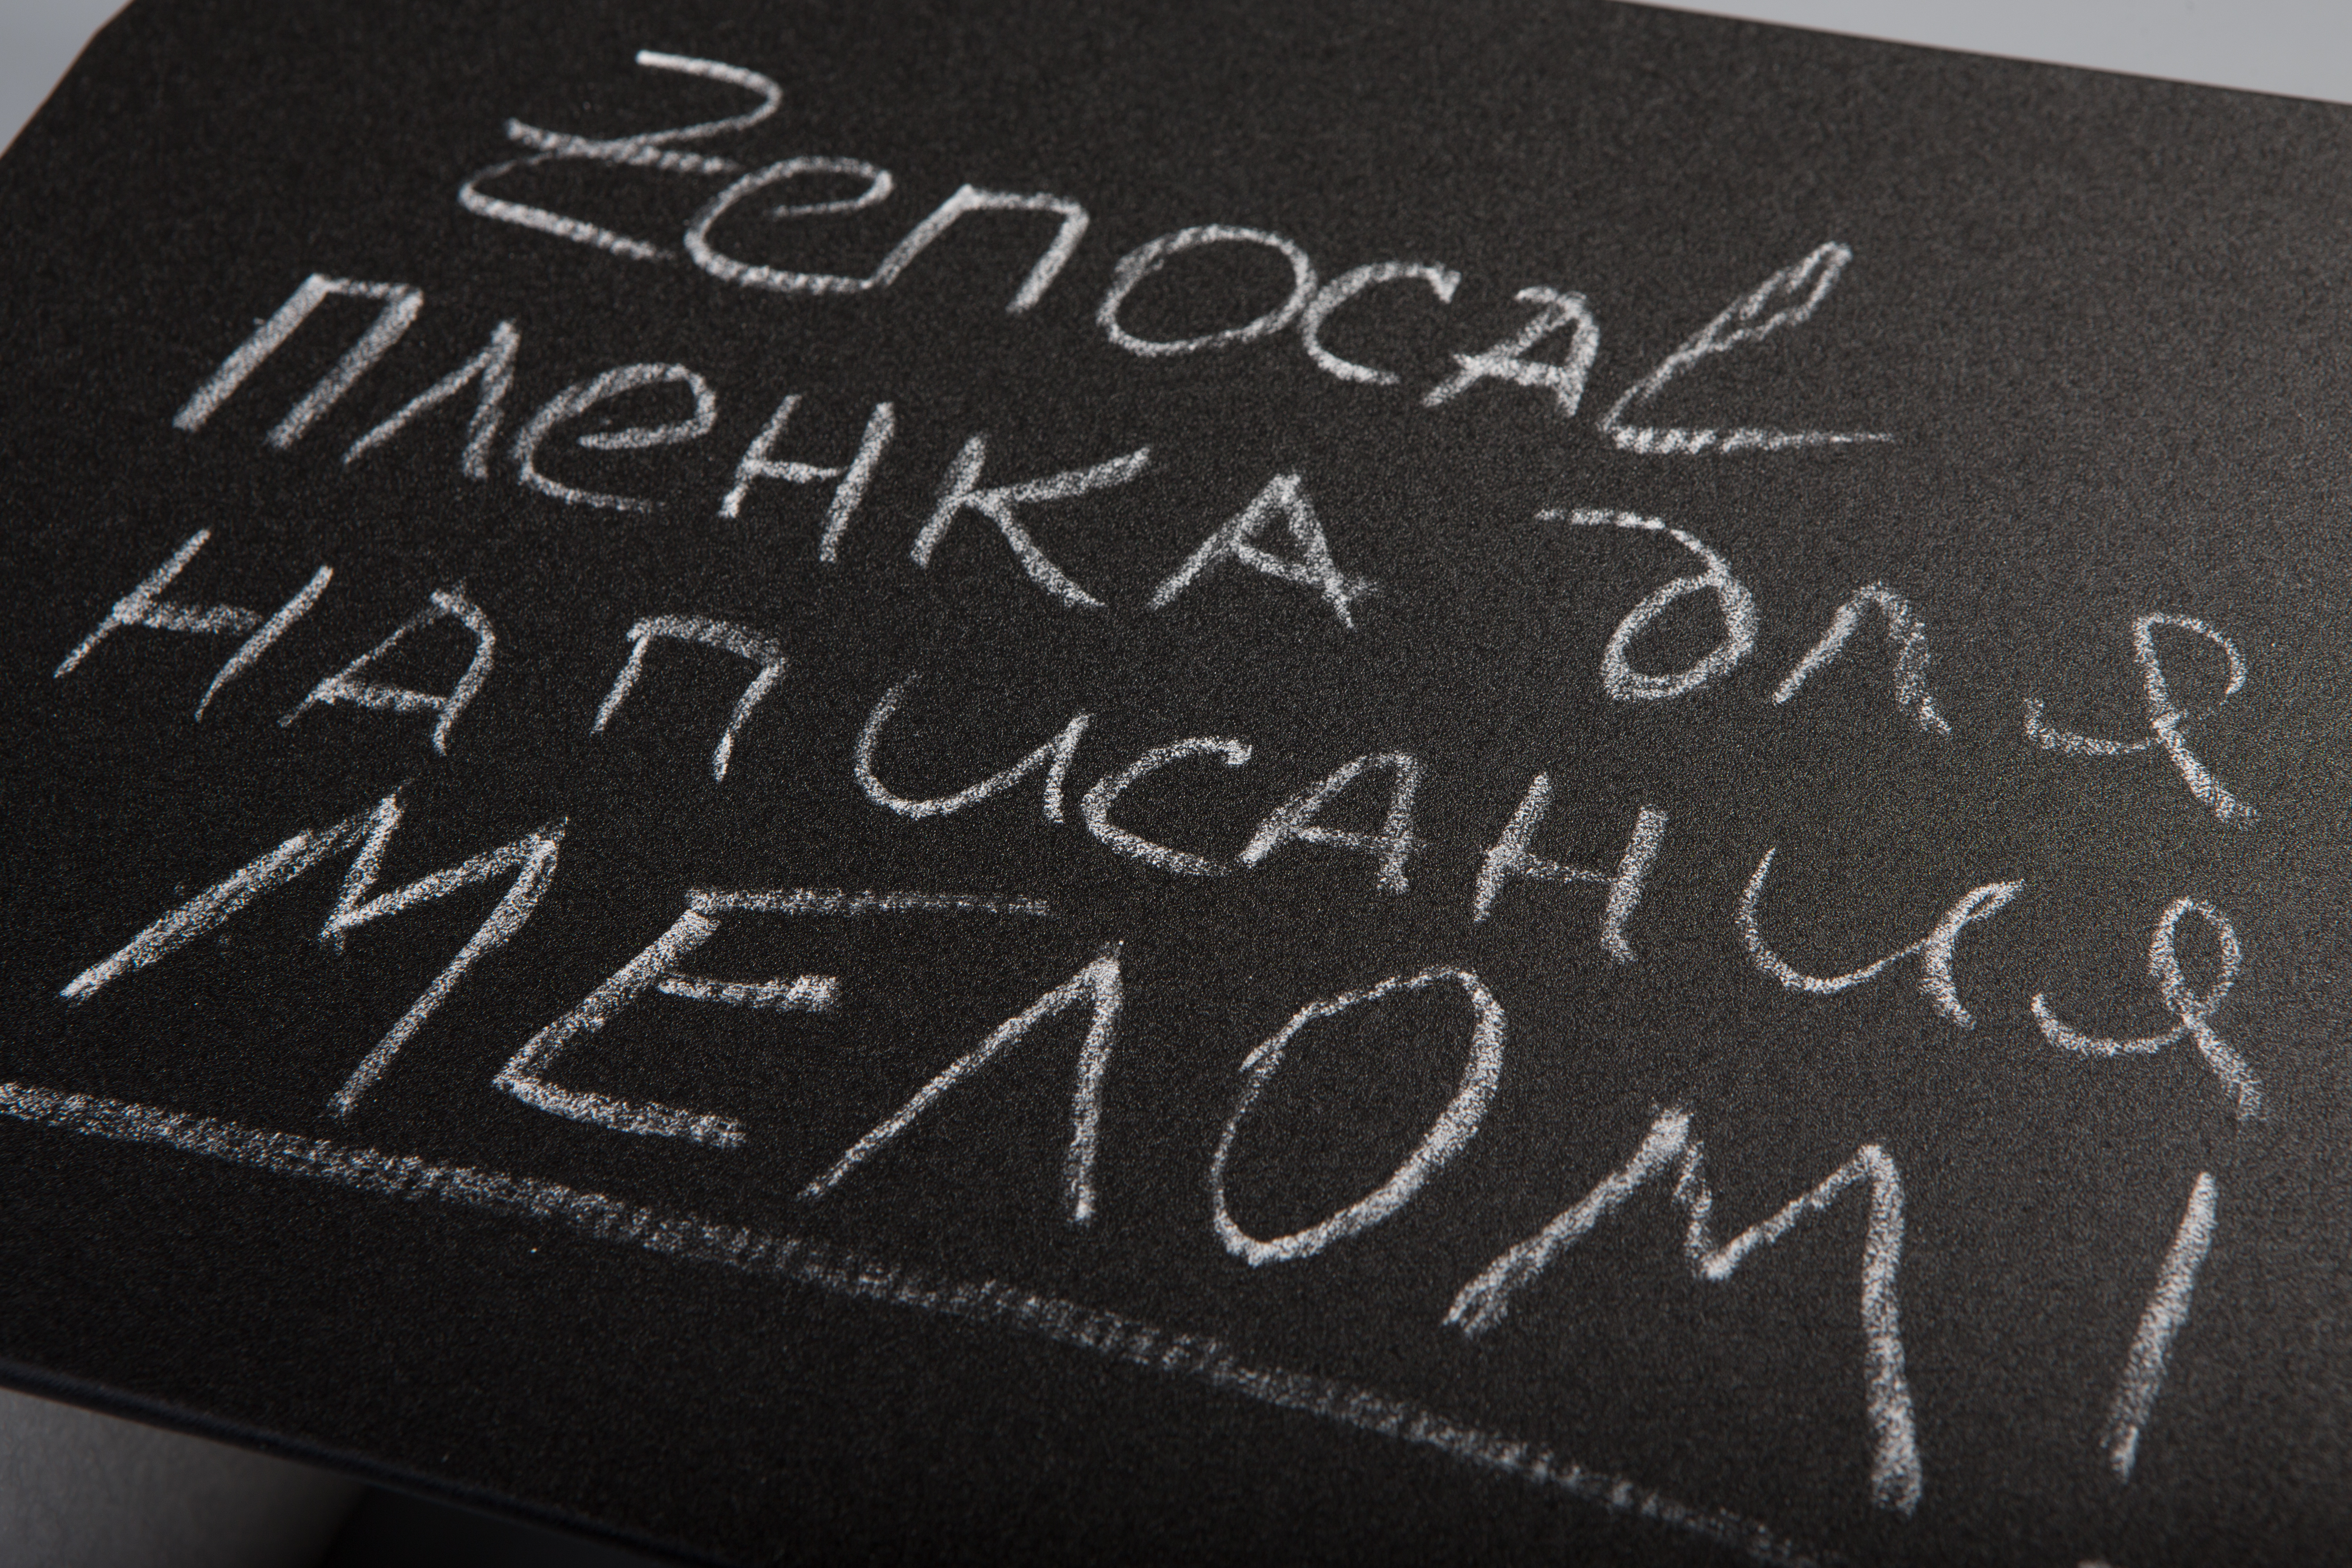 Zenocal
пленка для
написания
МЕЛОМ!